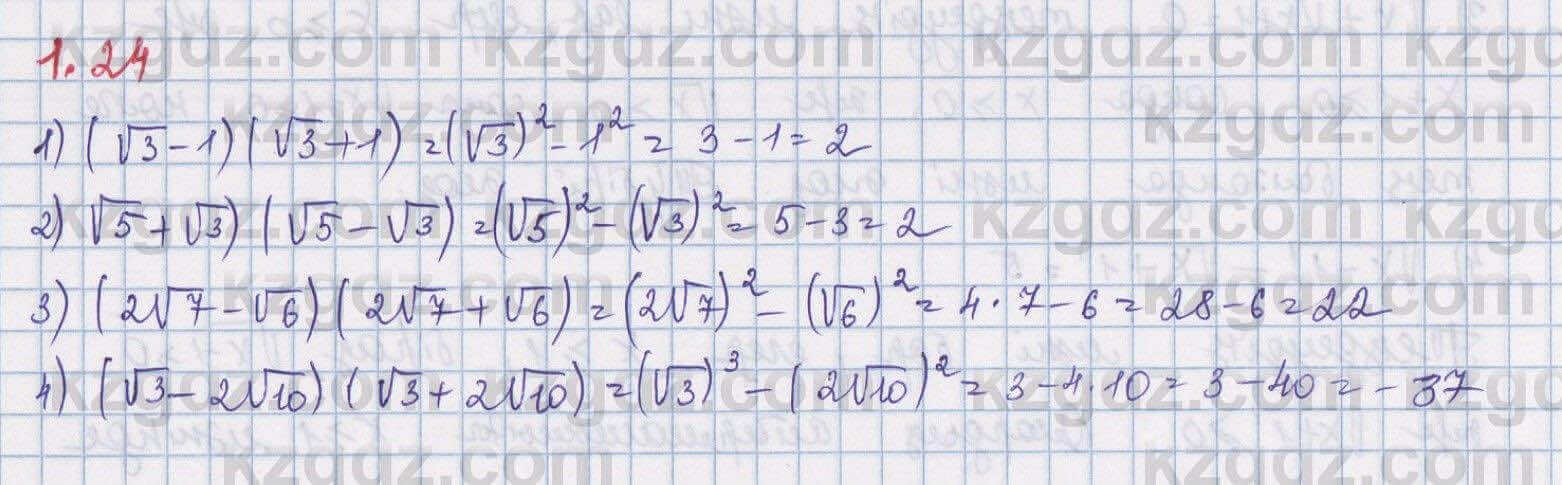 1.24
1) (√3-1)(√3+1)=(√3)²-1²=3-1=2
2) √5+√3)(√5-√3)=(√5)²-(√3)²=5-3=2
3) (2√7-√6)(2√7+√6)=(2√7)²-(√6)²=4·7-6=28-6=22
4) (√3-2√10)(√3+2√10)=(√3)³-(2√10)²=3-4·10=3-40=-37
kzgdz.com kzgdz.com kzgdz.com
kzgdz.com
kzgdz.com kzgdz.com
kzgdz.com
kzgdz.com kzgdz.com
kzgdz.com